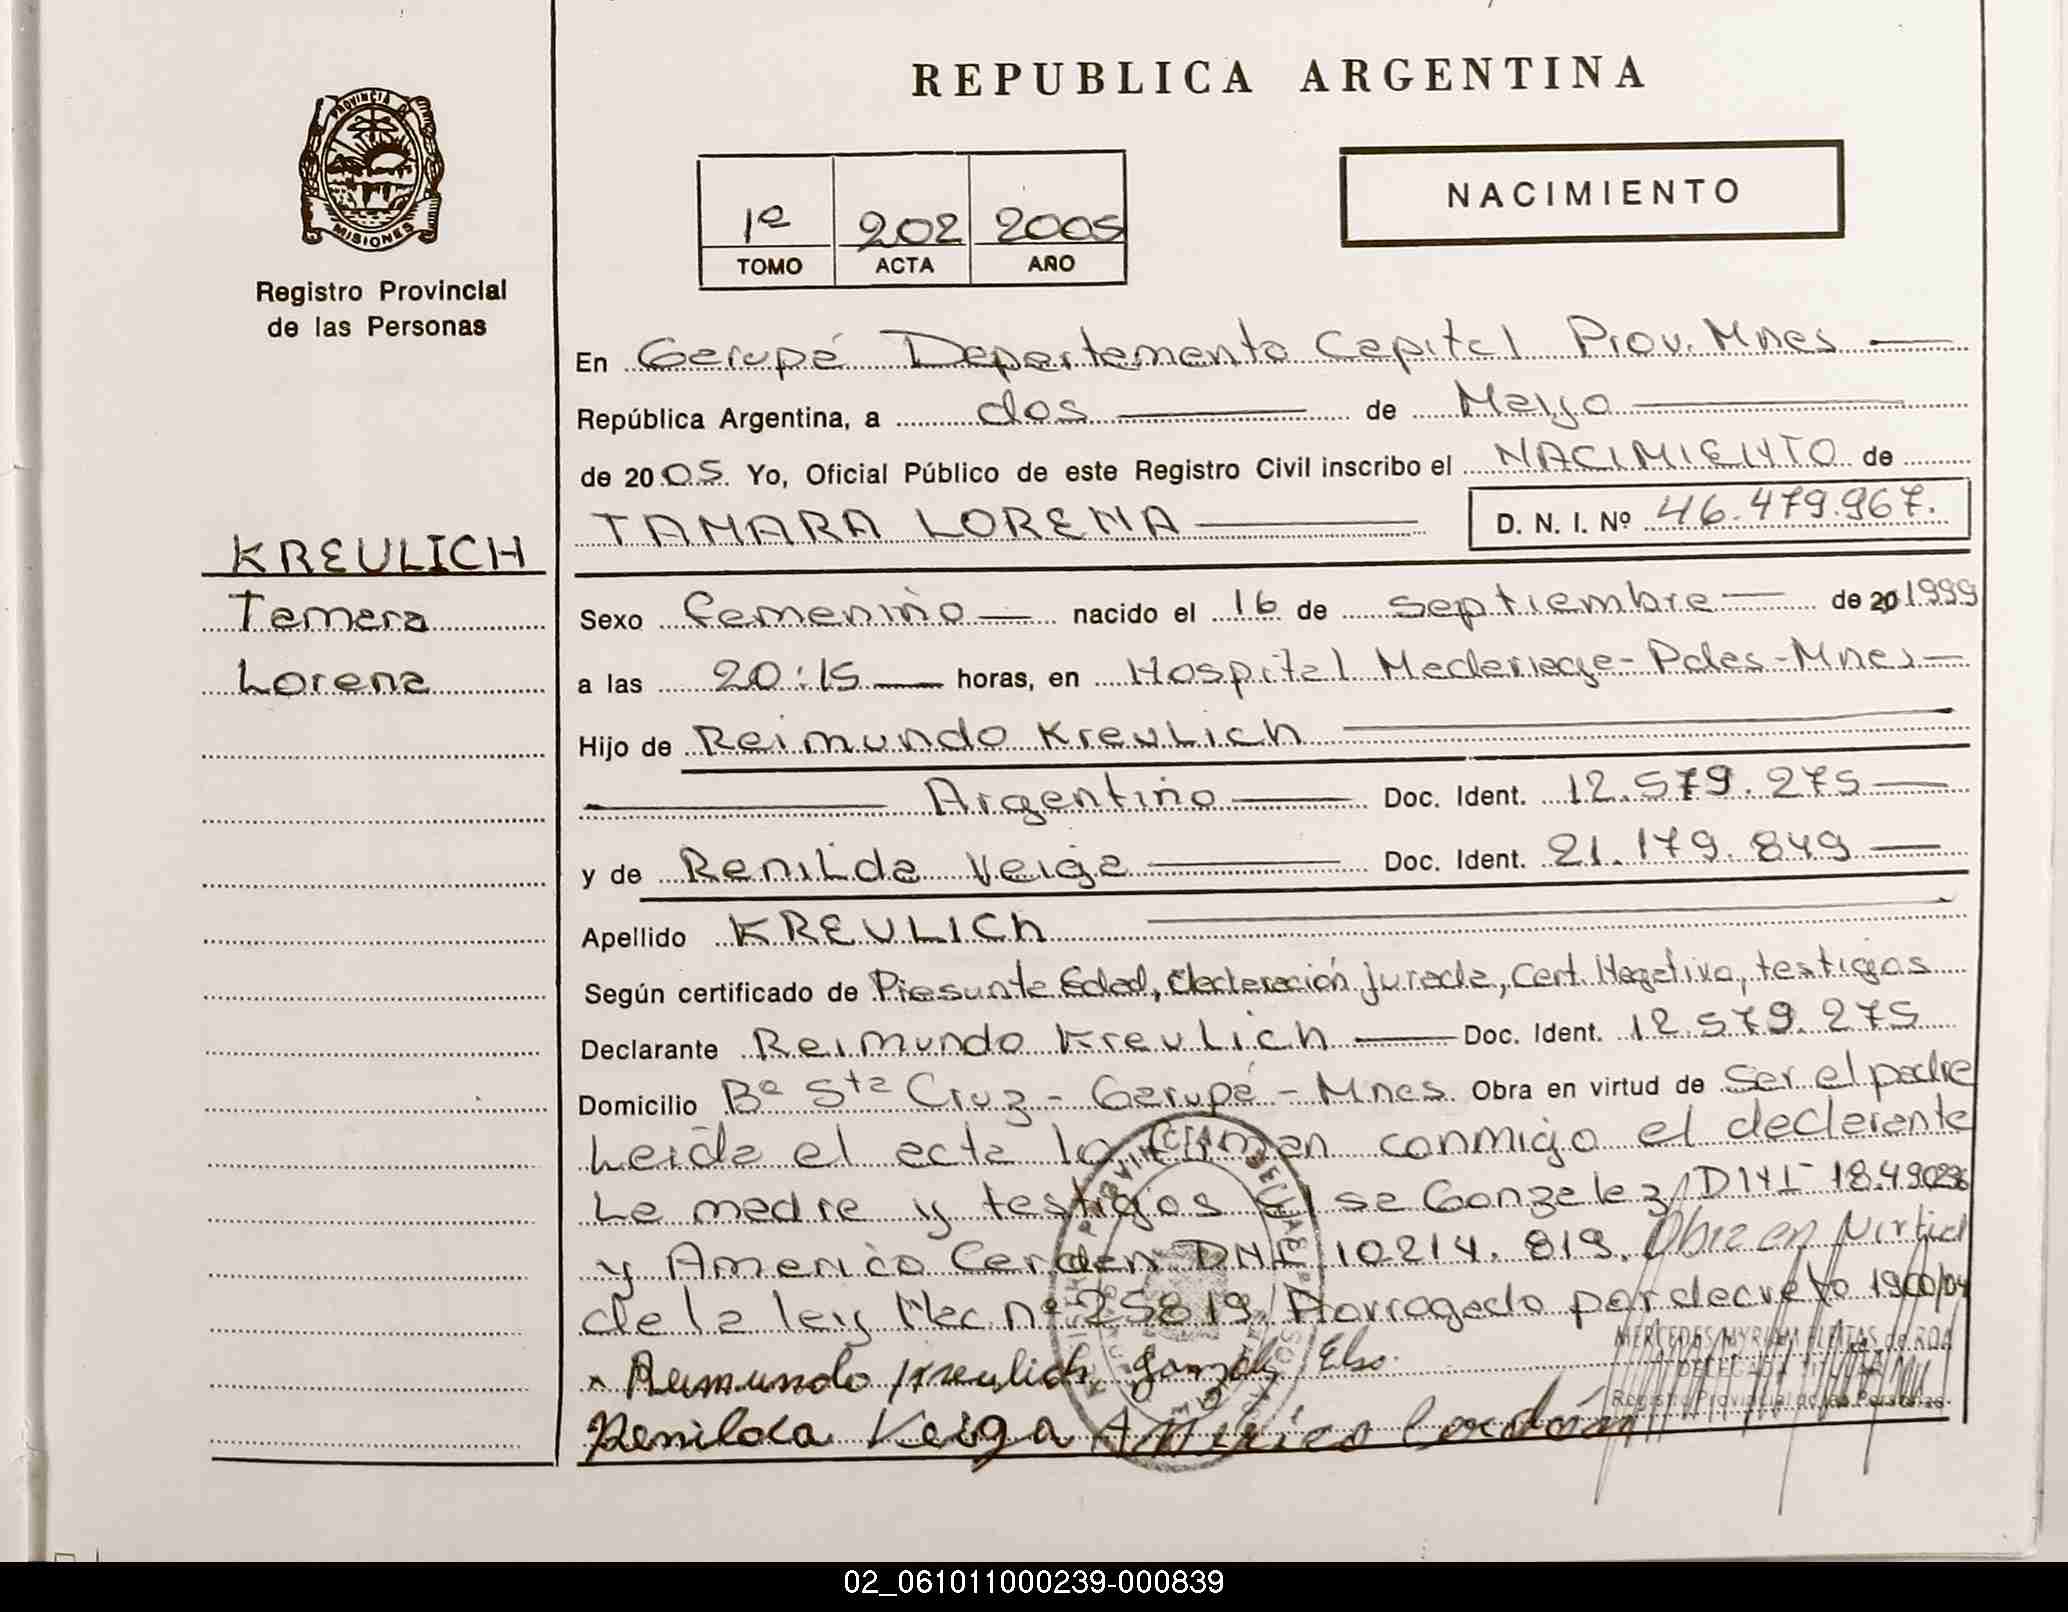 REPUBLICA ARGENTINA
PROVINCIA DE
MISIONES
Registro Provincial
de las Personas
1ª 202 2005
TOMO ACTA AÑO
NACIMIENTO
En Garupá Departamento Capital Prov. Mnes
República Argentina, a dos de Mayo
de 2005. Yo, Oficial Público de este Registro Civil inscribo el NACIMIENTO de
TAMARA LORENA D. N. I. Nº 46.479.967.
KREULICH
Tamara
Lorena
Sexo femenino nacido el 16 de septiembre de 20 1999
a las 20:15 horas, en Hospital Madariaga - Pdas - Mnes
Hijo de Reimundo Kreulich
Argentino Doc. Ident. 12.579.275
y de Renilda Veiga Doc. Ident. 21.179.849
Apellido KREULICH
Según certificado de Presunta Edad, declaración jurada, Cert. Negativo, testigos
Declarante Reimundo Kreulich Doc. Ident. 12.579.275
Domicilio Bº Sta Cruz - Garupá - Mnes. Obra en virtud de ser el padre
Leída el acta la firman conmigo el declarante
La madre y testigos Gonzalez DNI 18.490
y Americo Cardan DNI 10214.819. Obra en virtud
de la ley Nac nº 25819 Prorrogado por decreto 1900/04
Reimundo Kreulich
Renilda Veiga Americo Cardán
MERCEDES MYRIAM FLEITAS de ROA
DELEGADA TITULAR
Registro Provincial de las Personas
02_061011000239-000839